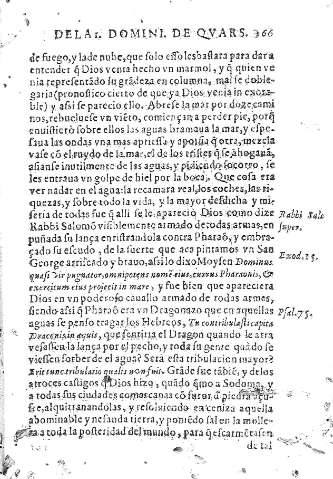 DE LA I. DOMINI. DE QVARS. 366
de fuego, y la de nube, que solo esso les bastara para dar a
entender q̃ Dios venia hecho vn marmol, y q̃ quien ve
nia representado su grãdeza en columna, mal se doble-
garia (pronostico cierto de que ya Dios venia inexora-
ble) y assi se parecio ello. Abrese la mar por doze cami
nos, rebueluese vn viẽto, comiençan a perder pie, porq̃
enuistierõ sobre ellos las aguas bramaua la mar, y espe
ssaua las ondas vna mas apriessa y aporsia q̃ otra, mezcla
vase cõ el ruydo de la mar, el de los tristes q̃ se ahogauã,
asianse inutilmente de las aguas, y pidiendo socorro, se
les entraua vn golpe de hiel por la boca. Que cosa era
ver nadar en el agua: la recamara real, los coches, las ri-
quezas, y sobre todo la vida, y la mayor desdicha y mi-
seria de todas fue q̃ alli se le apareciò Dios como dize
Rabbi Salomõ visiblemente armado de todas armas, en
puñada su lança enristrandola contra Pharaõ, y embra-
çado su escudo, de la suerte que aca pintamos vn San
George arriscado y brauo, assi lo dixo Moysen Dominus
quasi vir pugnator, omnipotens nomẽ eius, currus Pharaonis, &
exercitum eius proiecit in mare, y fue bien que apareciera
Dios en vn poderoso cauallo armado de todas armas,
siendo assi q̃ Pharaõ era vn Dragonazo que en aquellas
aguas se penso tragar los Hebreos, Tu contribulasti capita
Draconis in aquis, que sentiria el Dragon quando le atra
vesassen la lança por el pecho, y toda su gente quãdo se
viessen sorber de el agua? Sera esta tribulacion mayor?
Erit tunc tribulatio qualis non fuit. Grãde fue tãbiẽ, y de los
atroces castigos q̃ Dios hizo, quãdo q̃mo a Sodoma, y
a todas sus ciudades comarcanas cõ furor, a piedra açu-
fre, alquitranandolas, y resoluiendo en ceniza aquella
abominable y nefanda tierra, y poniẽdo sal en la molle-
ra a toda la posteridad del mundo, para q̃ escarmẽtasen
de tal
Rabbi Salo
super.
Exod. 15.
Psal. 75.